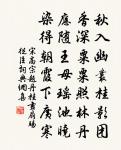 秋入幽巖桂影團
香深粟粟照林丹
應隨王母瑤池晚
染得朝霞下廣寒
宋高宗題丹桂畫扇賜
從臣詞典網集